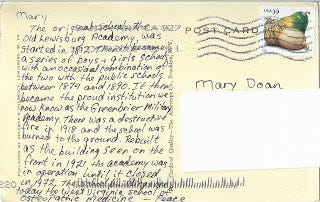 Mary
The original school, the
Old Lewisburg Academy, was
started in 1812. Then it became
a series of boys & girls schools
with an occasional combination of
the two with the public schools
between 1879 and 1890. It then
became the proud institution we
now know as the Greenbrier Military
Academy. There was a destructive
fire in 1918 and the school was
burned to the ground. Rebuilt
as the building seen on the
front in 1921 the academy was
in operation until it closed
in 1972. The
today the West Virginia school of
Osteopathic Medicine - Peace
POST CARD
USA 39
Mary Doan